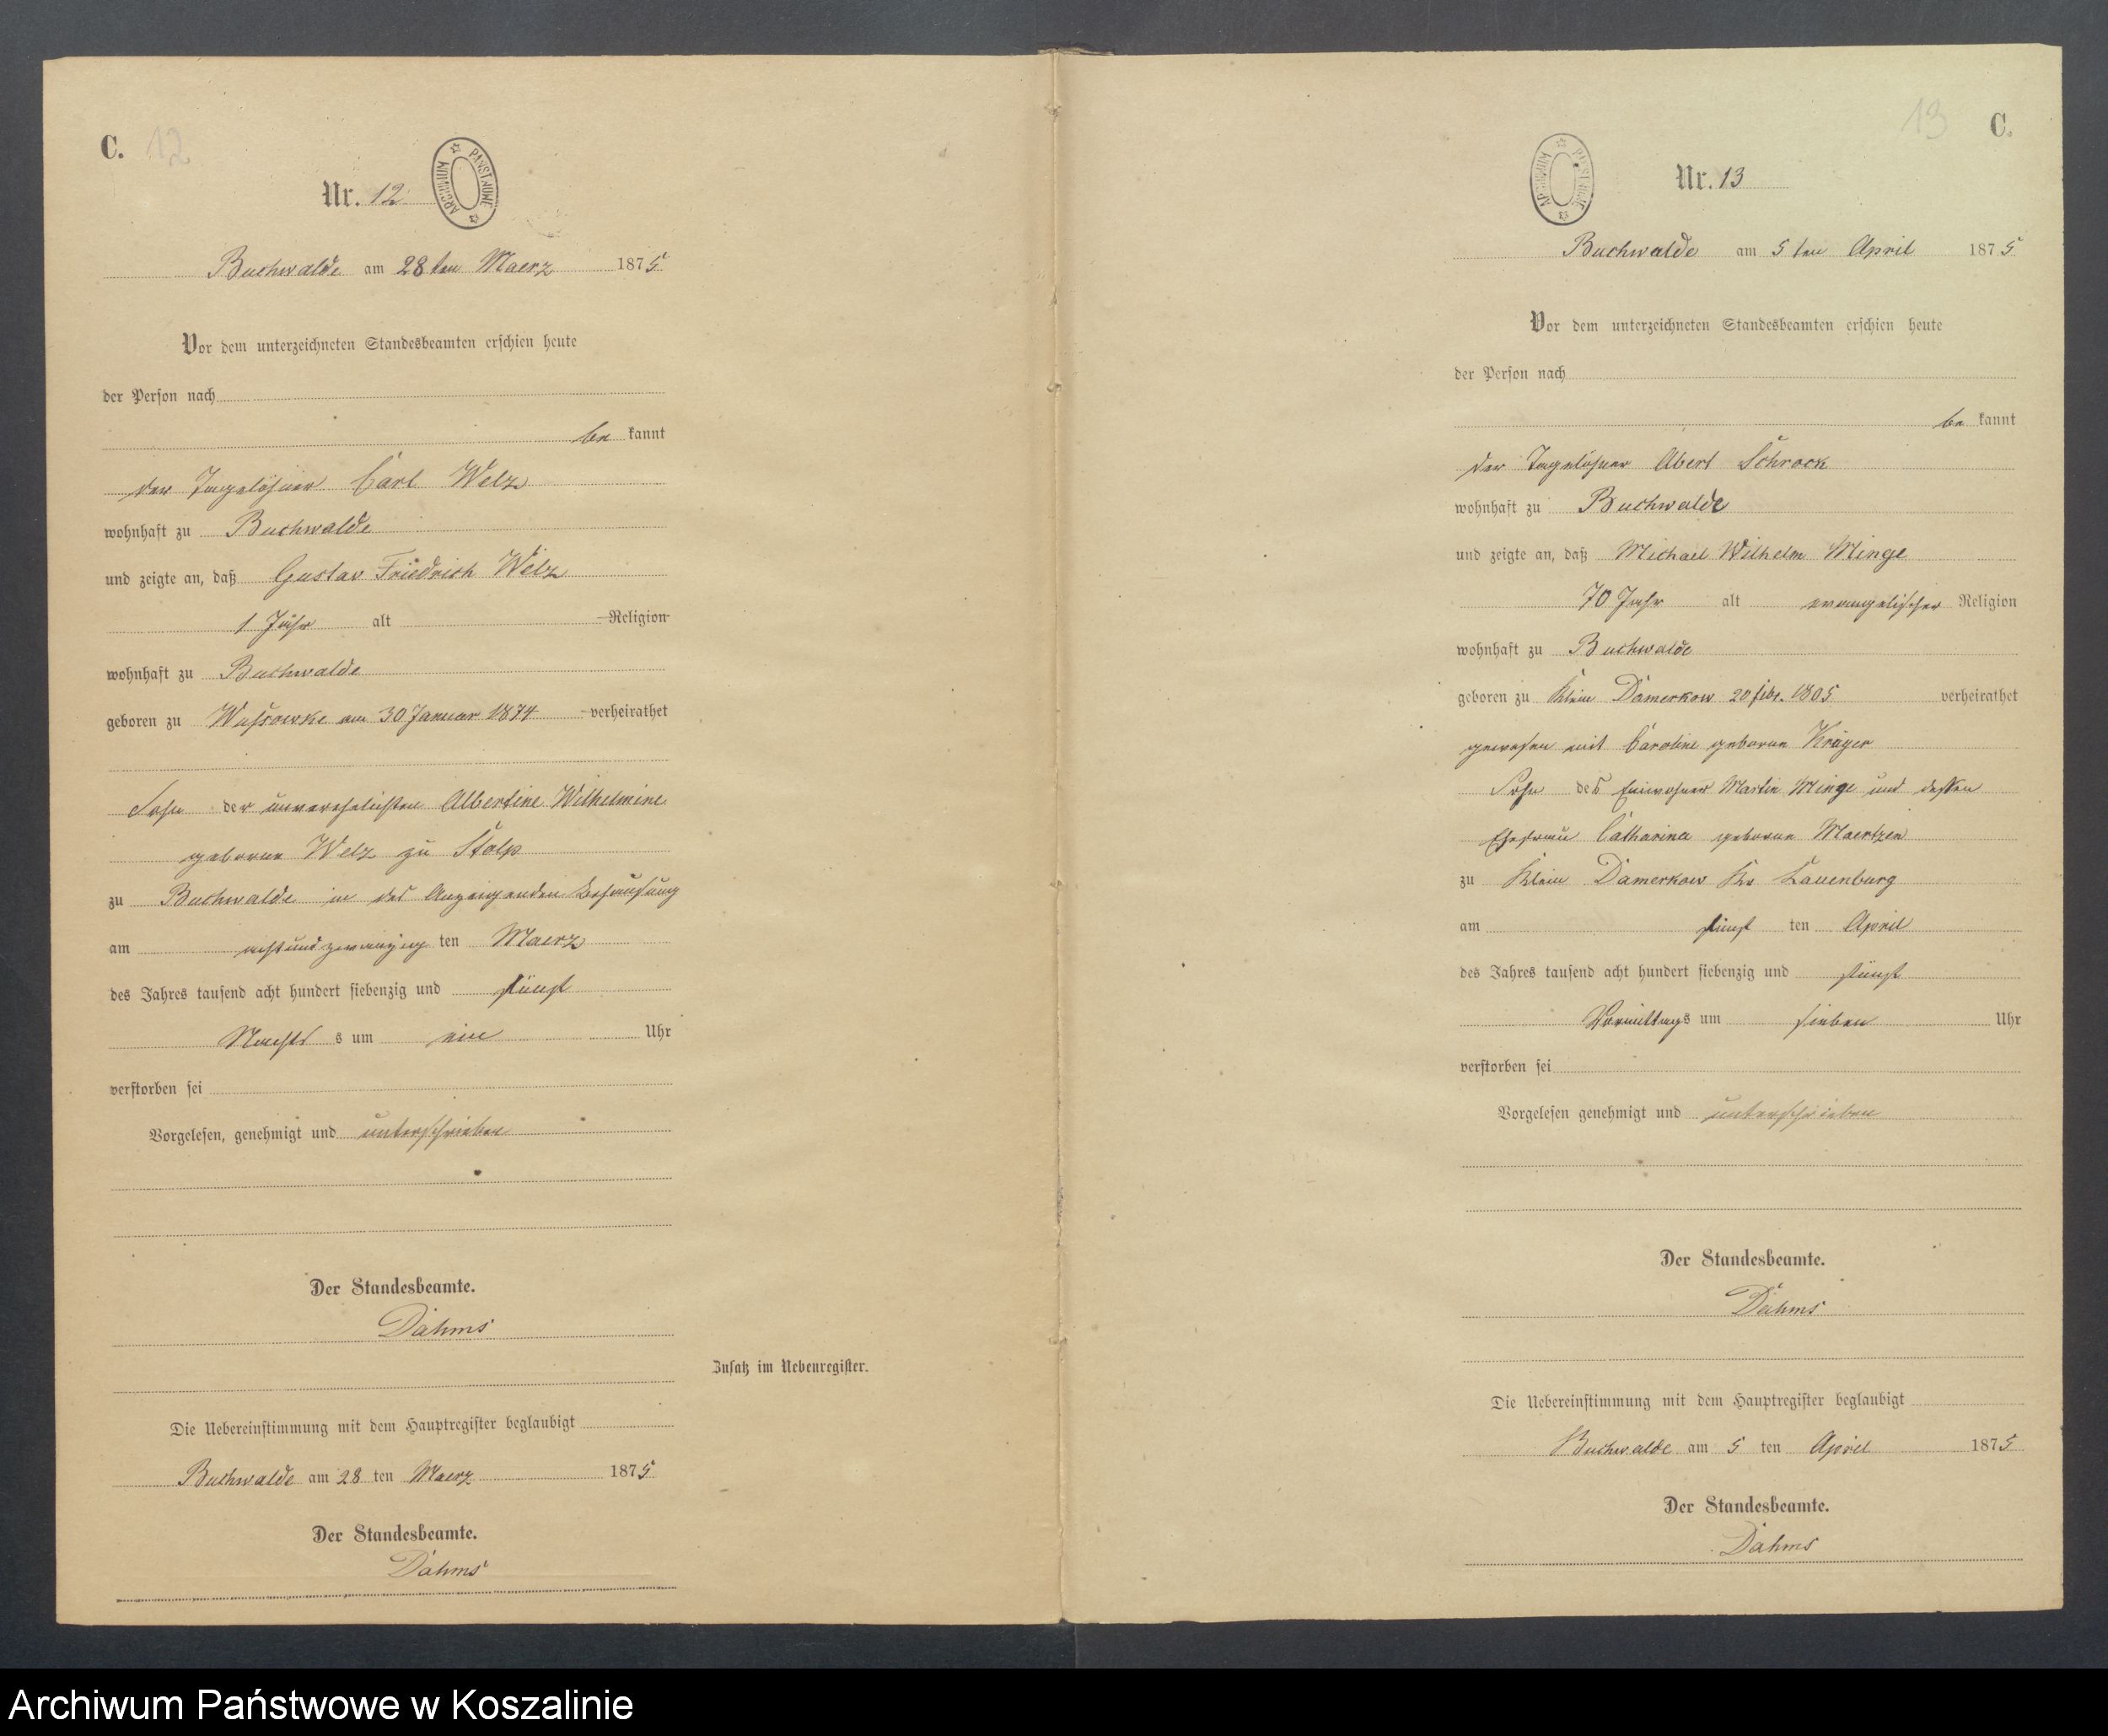 C. 12
Nr. 12
ARCHIWUM PAŃSTWOWE
Buchwalde am 28 ten Maerz 1875
Vor dem unterzeichneten Standesbeamten erschien heute
der Person nach
be kannt
der Tagelöhner Carl Welz
wohnhaft zu Buchwalde
und zeigte an, daß Gustav Friedrich Welz
1 Jahr alt Religion
wohnhaft zu Buchwalde
geboren zu Wussowke am 30 Januar 1874 verheirathet
Sohn der unverehelichten Albertine Wilhelmine
geborne Welz zu Stolp
zu Buchwalde in des Anzeigenden Behausung
am achtundzwanzig ten Maerz
des Jahres tausend acht hundert siebenzig und fünf
Nachts s um ein Uhr
verstorben sei
Vorgelesen, genehmigt und unterschrieben
Der Standesbeamte.
Dahms
Zusatz im Nebenregister.
Die Uebereinstimmung mit dem Hauptregister beglaubigt
Buchwalde am 28 ten Maerz 1875
Der Standesbeamte.
Dahms
13 C.
Nr. 13
ARCHIWUM PAŃSTWOWE
Buchwalde am 5 ten April 1875
Vor dem unterzeichneten Standesbeamten erschien heute
der Person nach
be kannt
der Tagelöhner Abert Schrock
wohnhaft zu Buchwalde
und zeigte an, daß Michael Wilhelm Minge
70 Jahr alt evangelischer Religion
wohnhaft zu Buchwalde
geboren zu Klein Damerkow 20 febr. 1805 verheirathet
gewesen mit Caroline geborne Krüger
Sohn des Einwohner Martin Minge und dessen
Ehefrau Catharina geborne Maertzen
zu Klein Damerkow Kr Lauenburg
am fünf ten April
des Jahres tausend acht hundert siebenzig und fünf
Vormittags um sieben Uhr
verstorben sei
Vorgelesen genehmigt und unterschrieben
Der Standesbeamte.
Dahms
Die Uebereinstimmung mit dem Hauptregister beglaubigt
Buchwalde am 5 ten April 1875
Der Standesbeamte.
Dahms
Archiwum Państwowe w Koszalinie